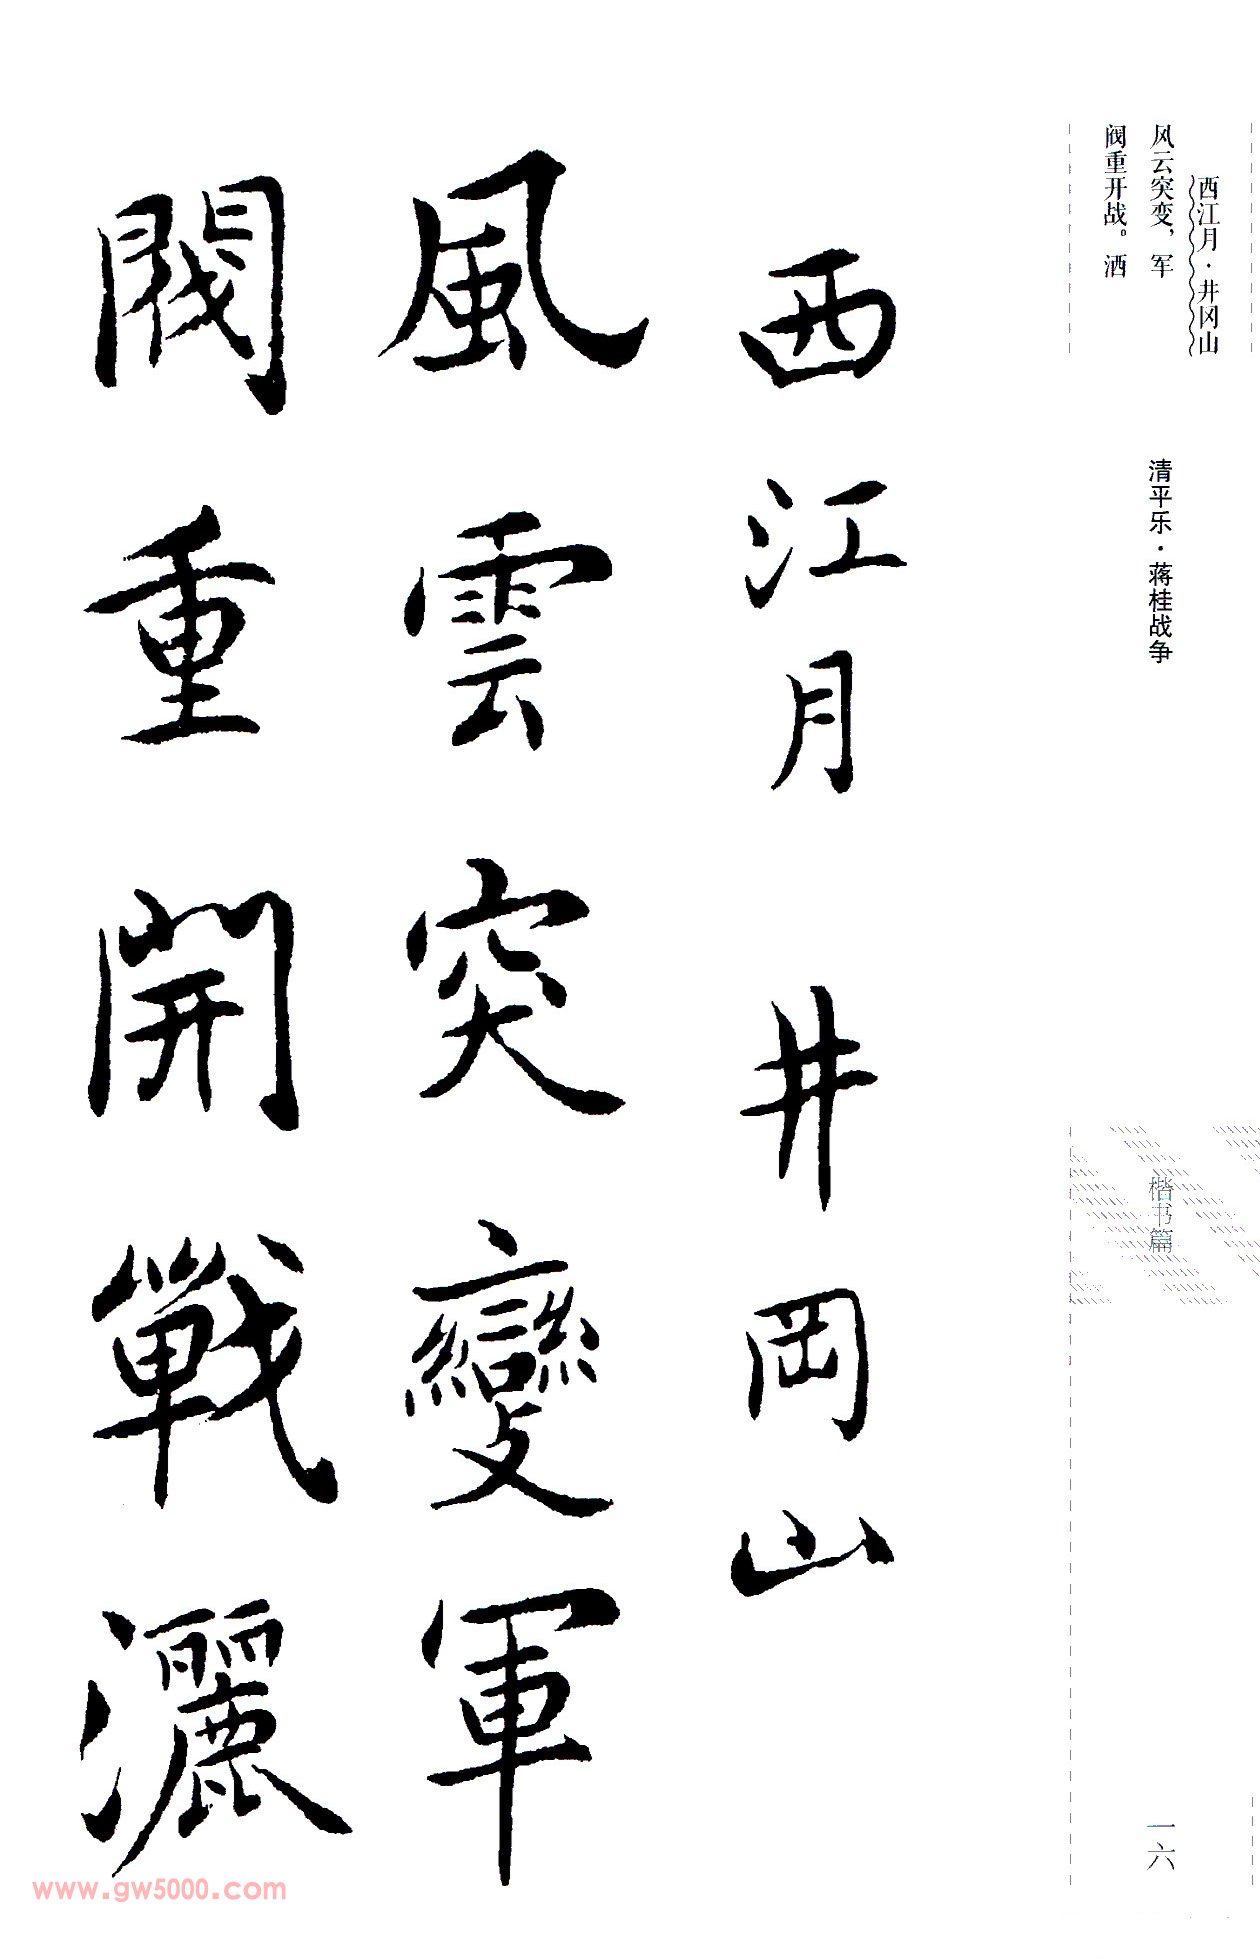 西江月·井冈山
风云突变，军
阀重开战。洒
清平乐·蒋桂战争
楷书篇
一六
西江月 井岡山
風雲突變軍
閥重開戰灑
www.gw5000.com